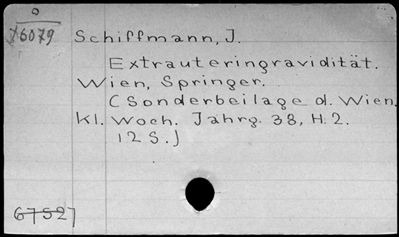 o
76079
Schiffmann, J.
Extrauteringravidität.
Wien, Springer.
(Sonderbeilage d. Wien.
kl. Woch. Jahrg. 38, H. 2.
12 S.)
67527